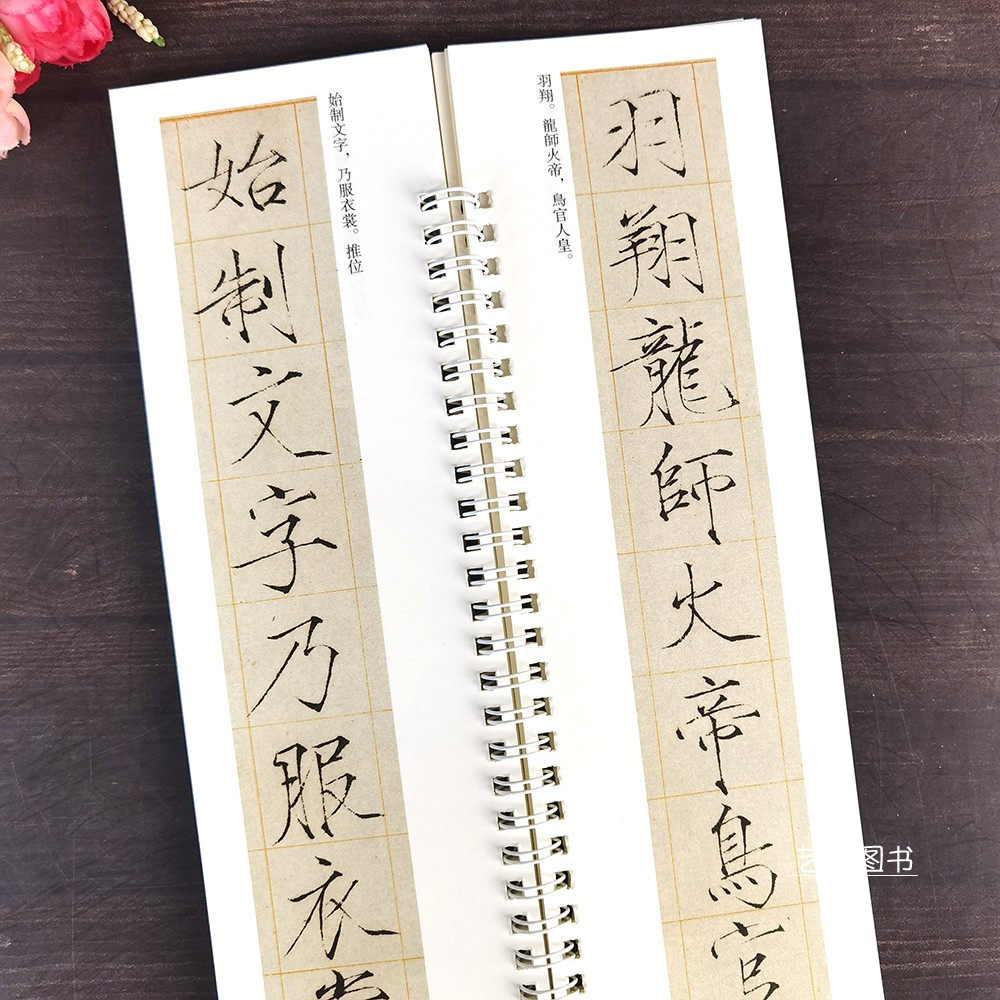 羽翔。龍師火帝，鳥官人皇。
羽翔龍師火帝鳥官
始制文字，乃服衣裳。推位
始制文字乃服衣裳
图书